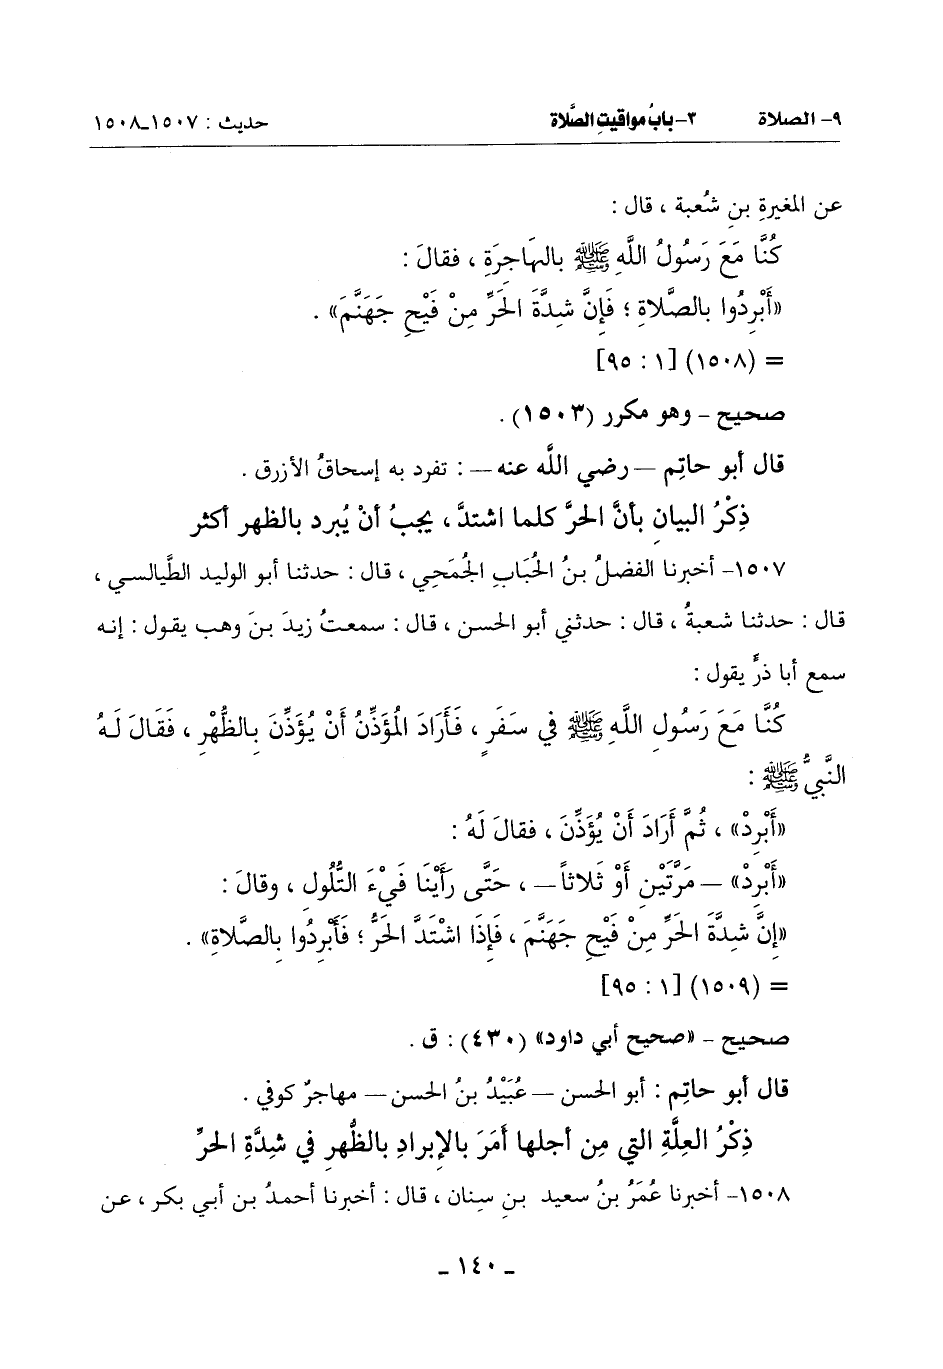 ٩- الصلاة ٣- بابُ مواقيتِ الصَّلاة حديث : ١٥٠٧ـ١٥٠٨
عن المغيرةِ بنِ شُعبة ، قال :
كُنَّا مَعَ رَسُولُ اللَّهِ ﷺ بالهَاجِرَةِ ، فقالَ :
«أَبْرِدُوا بالصَّلاةِ ؛ فَإِنَّ شِدَّةَ الحَرِّ مِنْ فَيْحِ جَهَنَّمَ» .
= (١٥٠٨) [١ : ٩٥]
صحيح - وهو مكرر (١٥٠٣) .
قال أبو حاتِم — رضي اللَّه عنه — : تفرد به إسحاقُ الأزرق .
ذِكْرُ البيانِ بأنَّ الحَرَّ كلما اشتدَّ ، يجبُ أنْ يُبرد بالظهر أكثر
١٥٠٧- أخبرنا الفضلُ بنُ الحُبَابِ الجُمَحِي ، قال : حدثنا أبو الوليد الطَّيالسي ،
قال : حدثنا شعبةُ ، قال : حدثني أبو الحسن ، قال : سمعتُ زيدَ بنَ وهب يقول : إنه
سمع أبا ذرٍّ يقول :
كُنَّا مَعَ رَسُولِ اللَّهِ ﷺ في سَفَرٍ ، فَأَرَادَ المُؤَذِّنُ أَنْ يُؤَذِّنَ بِالظُّهْرِ ، فَقَالَ لَهُ
النَّبِيُّ ﷺ :
«أَبْرِدْ» ، ثُمَّ أَرَادَ أَنْ يُؤَذِّنَ ، فقالَ لَهُ :
«أَبْرِدْ» — مَرَّتَيْنِ أَوْ ثَلاثاً — ، حَتَّى رَأَيْنَا فَيْءَ التُّلُولِ ، وقالَ :
«إِنَّ شِدَّةَ الحَرِّ مِنْ فَيْحِ جَهَنَّمَ ، فَإِذَا اشْتَدَّ الحَرُّ ؛ فَأَبْرِدُوا بِالصَّلاةِ» .
= (١٥٠٩) [١ : ٩٥]
صحيح - «صحيح أبي داود» (٤٣٠) : ق .
قال أبو حاتِم : أبو الحسن — عُبَيْدُ بنُ الحسن — مهاجرٌ كوفي .
ذِكْرُ العِلَّةِ التي مِن أجلها أَمَرَ بالإبرادِ بالظُّهرِ في شِدَّةِ الحَرِّ
١٥٠٨- أخبرنا عُمَرُ بنُ سعيد بنِ سِنان ، قال : أخبرنا أحمدُ بن أبي بكر ، عن
ـ ١٤٠ ـ